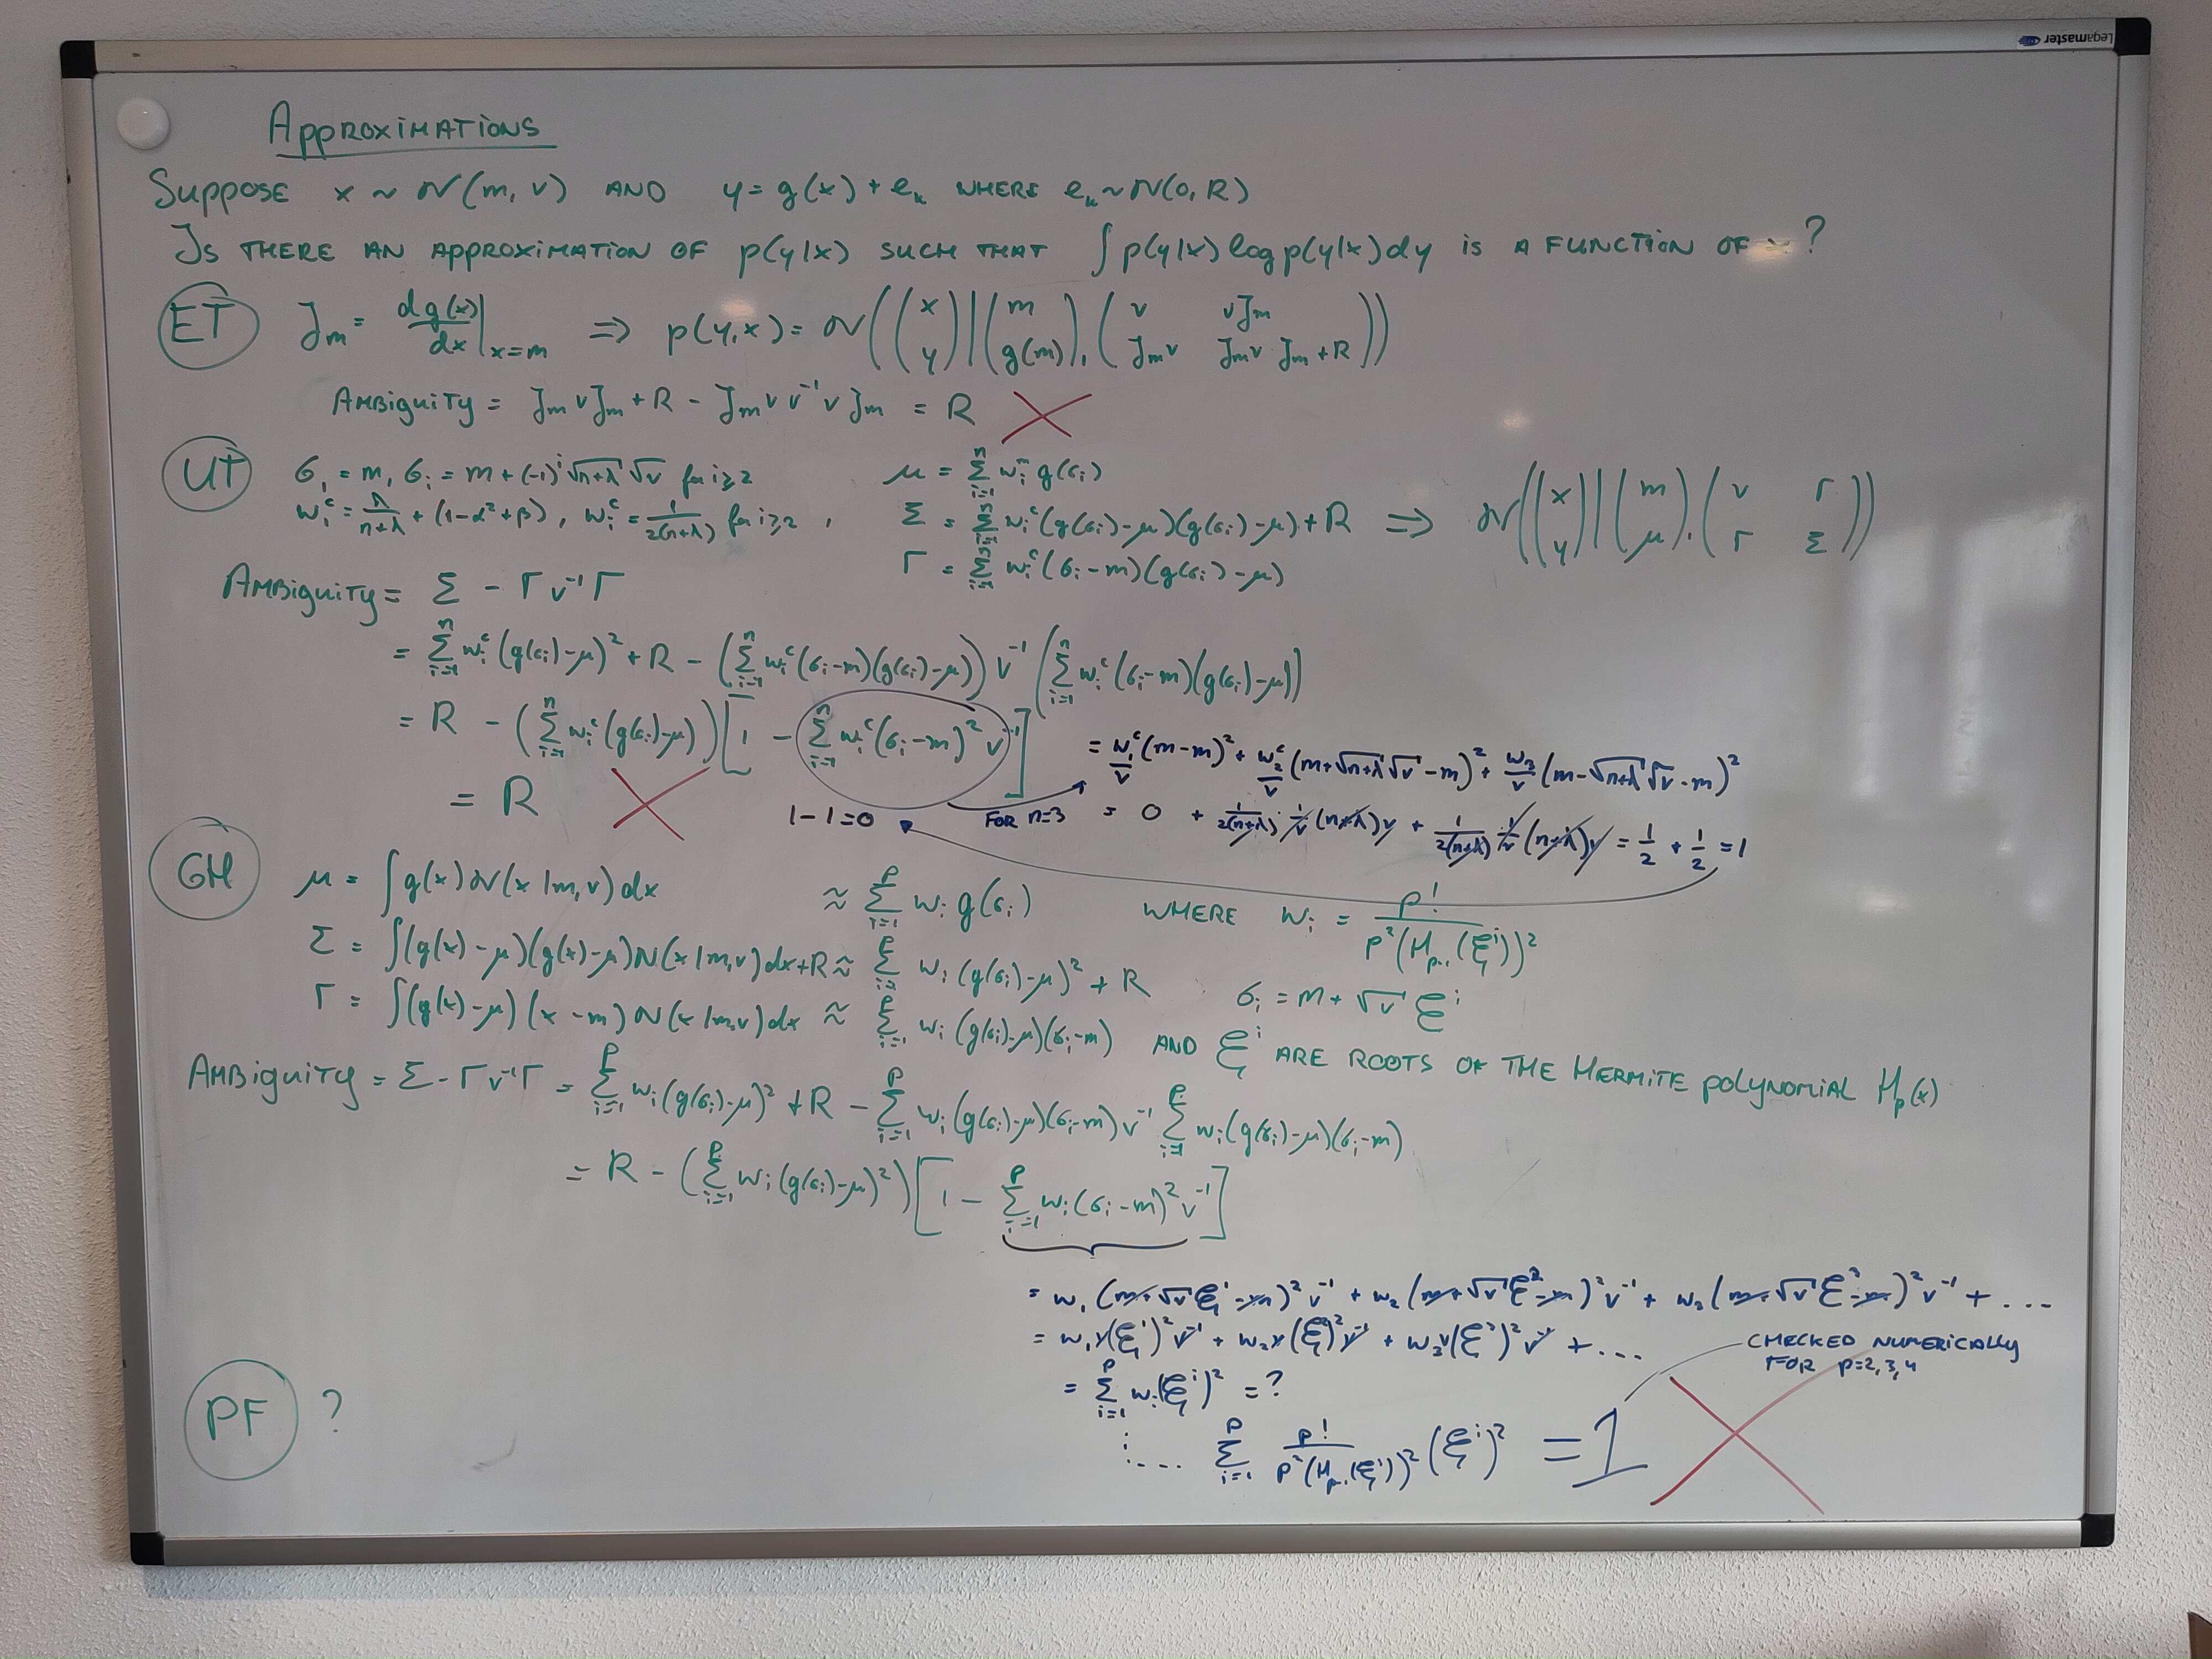 Legamaster
APPROXIMATIONS
SUPPOSE x ~ N(m, v) AND y = g(x) + e_k WHERE e_k ~ N(0, R)
IS THERE AN APPROXIMATION OF p(y|x) SUCH THAT ∫ p(y|x) log p(y|x) dy IS A FUNCTION OF x ?
ET J_m = dg(x)/dx |_{x=m} ⇒ p(y,x) = N( (x y) | (m g(m)), (v vJ_m J_m v J_m v J_m + R) )
AMBIGUITY = J_m v J_m + R - J_m v v^{-1} v J_m = R
UT σ_1 = m, σ_i = m + (-1)^i √(n+λ) √v for i≥2 μ = Σ_{i=1}^n w_i^m g(σ_i)
w_1^c = λ/(n+λ) + (1-α²+β), w_i^c = 1/(2(n+λ)) for i≥2, Σ = Σ_{i=1}^n w_i^c (g(σ_i)-μ)(g(σ_i)-μ) + R ⇒ N( (x y) | (m μ), (v Γ Γ Σ) )
Γ = Σ_{i=1}^n w_i^c (σ_i - m)(g(σ_i) - μ)
AMBIGUITY = Σ - Γ v^{-1} Γ
= Σ_{i=1}^n w_i^c (g(σ_i)-μ)² + R - (Σ_{i=1}^n w_i^c (σ_i-m)(g(σ_i)-μ)) v^{-1} (Σ_{i=1}^n w_i^c (σ_i-m)(g(σ_i)-μ))
= R - (Σ_{i=1}^n w_i^c (g(σ_i)-μ)) [1 - Σ_{i=1}^n w_i^c (σ_i-m)² v^{-1}]
= w_1^c/v (m-m)² + w_2^c/v (m+√(n+λ)√v - m)² + w_3/v (m-√(n+λ)√v - m)²
= R
1-1=0 FOR n=3 = 0 + 1/(2(n+λ)) · 1/v (n+λ)v + 1/(2(n+λ)) · 1/v (n+λ)v = 1/2 + 1/2 = 1
GH μ = ∫ g(x) N(x|m,v) dx ≈ Σ_{i=1}^p w_i g(σ_i) WHERE w_i = p!/(p²(H_{p-1}(ξ^i))²)
Σ = ∫ (g(x)-μ)(g(x)-μ) N(x|m,v) dx + R ≈ Σ_{i=1}^p w_i (g(σ_i)-μ)² + R
σ_i = m + √v ξ^i
Γ = ∫ (g(x)-μ)(x-m) N(x|m,v) dx ≈ Σ_{i=1}^p w_i (g(σ_i)-μ)(σ_i-m) AND ξ^i ARE ROOTS OF THE HERMITE POLYNOMIAL H_p(x)
AMBIGUITY = Σ - Γ v^{-1} Γ = Σ_{i=1}^p w_i (g(σ_i)-μ)² + R - Σ_{i=1}^p w_i (g(σ_i)-μ)(σ_i-m) v^{-1} Σ_{i=1}^p w_i (g(σ_i)-μ)(σ_i-m)
= R - (Σ_{i=1}^p w_i (g(σ_i)-μ)²) [1 - Σ_{i=1}^p w_i (σ_i-m)² v^{-1}]
= w_1 (m+√v ξ^1 - m)² v^{-1} + w_2 (m+√v ξ^2 - m)² v^{-1} + w_3 (m+√v ξ^3 - m)² v^{-1} + ...
= w_1 v(ξ^1)² v^{-1} + w_2 v(ξ^2)² v^{-1} + w_3 v(ξ^3)² v^{-1} + ...
CHECKED NUMERICALLY
FOR p=2,3,4
= Σ_{i=1}^p w_i (ξ^i)² = ?
PF ?
..... Σ_{i=1}^p p!/(p²(H_{p-1}(ξ^i))²) (ξ^i)² = 1